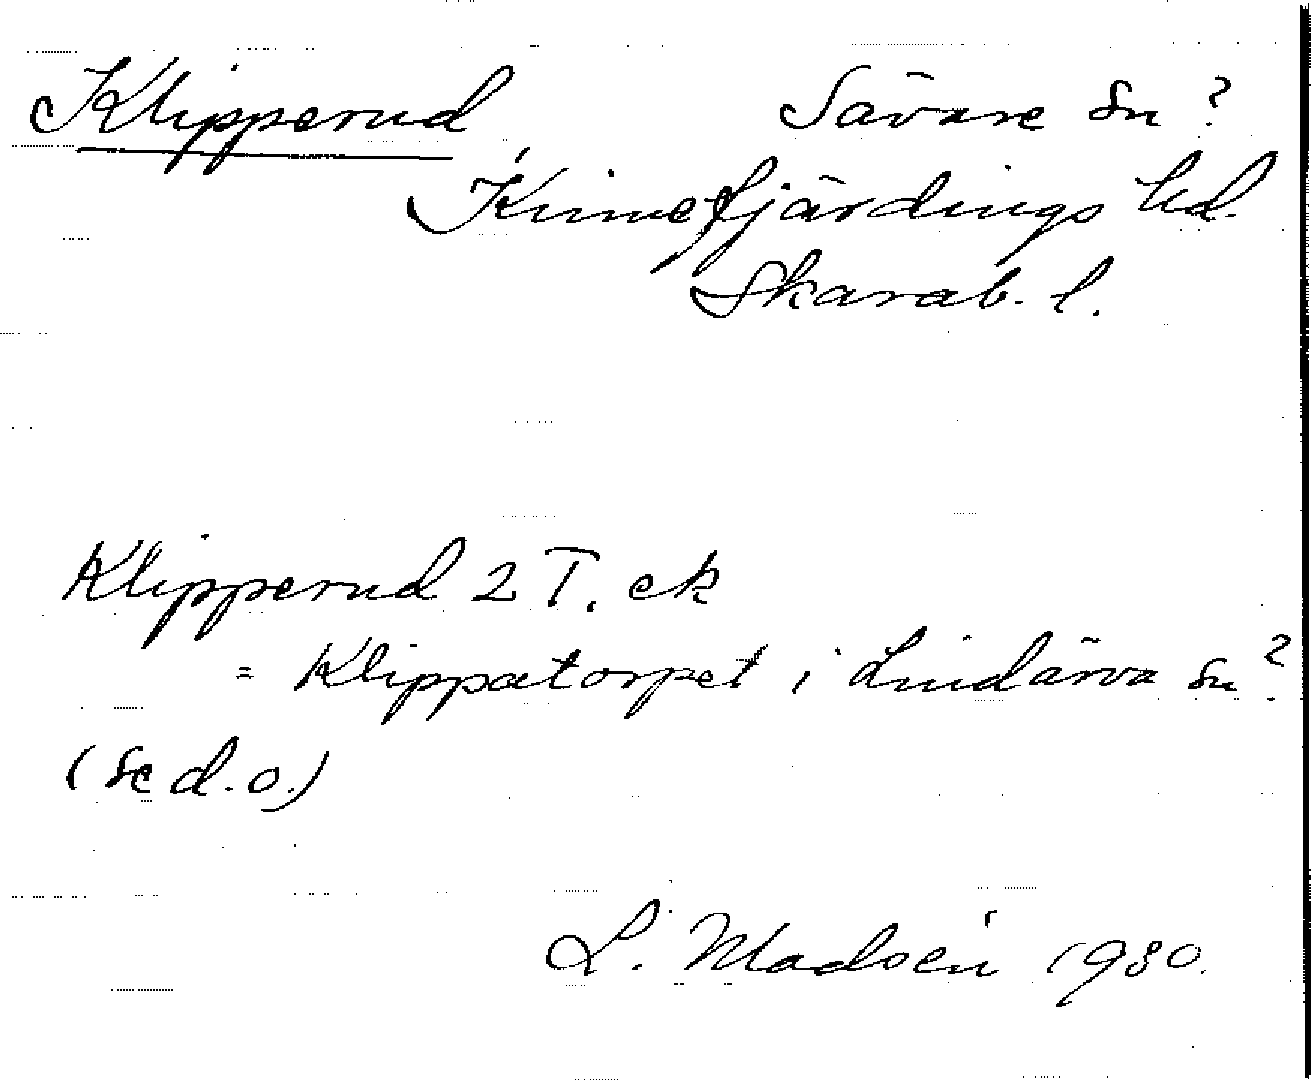 Klipperud Sävare sn ?
Kinnefjärdings hd.
Skarab. l.
Klipperud 2 T. ek
= Klippatorpet i Lindärva sn ?
(se d.o.)
L. Madsén 1930.